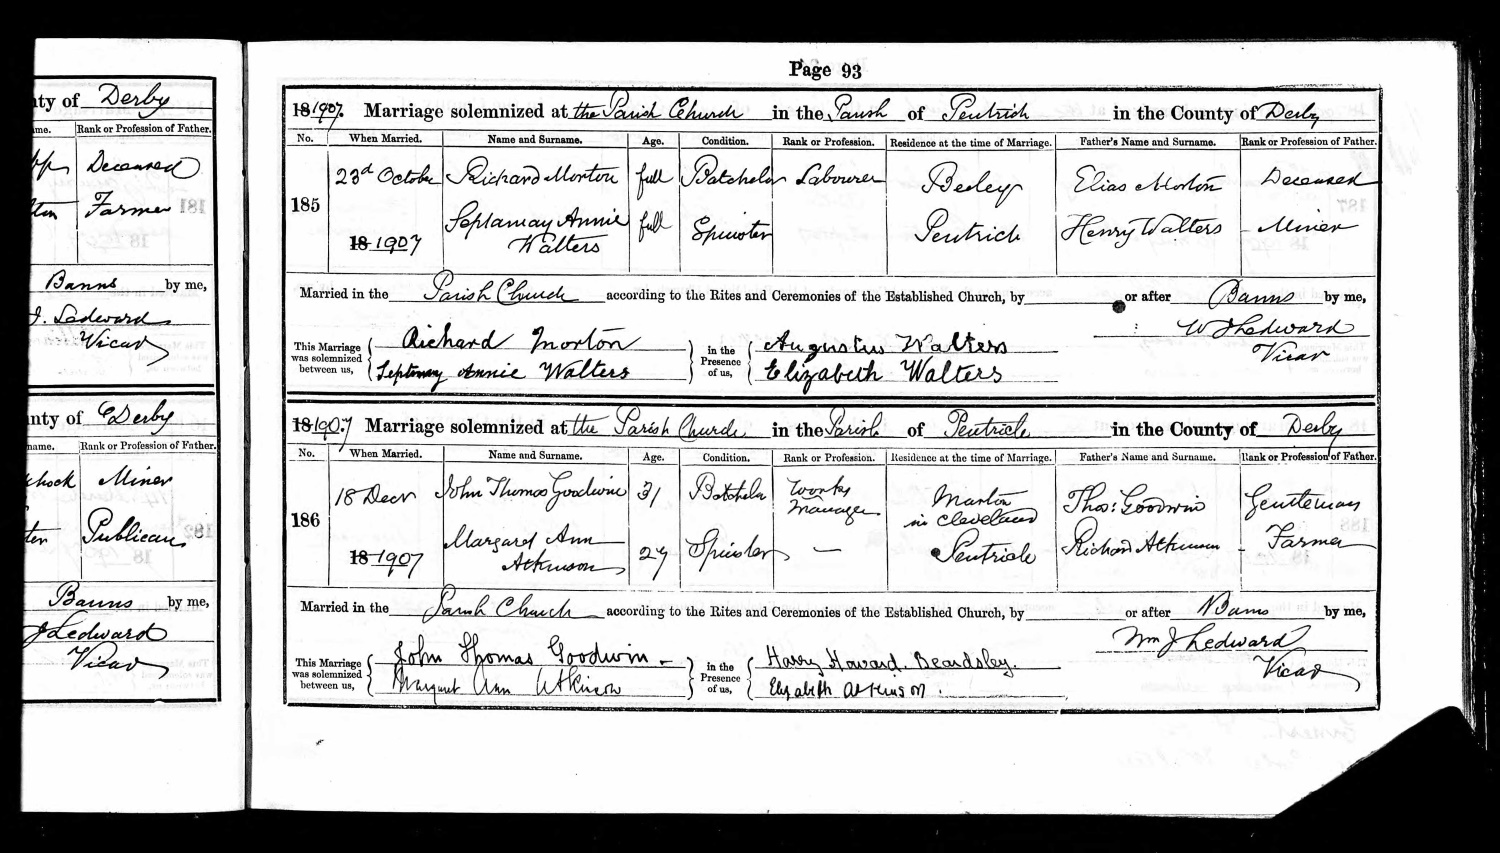 nty of Derby
me. Rank or Profession of Father.
Deceased
Farmer
Banns by me,
J. Ledward
Vicar
nty of Derby
name. Rank or Profession of Father.
Miner
Publican
Banns by me,
J Ledward
Vicar
Page 93
18 1907. Marriage solemnized at the Parish Church in the Parish of Pentrich in the County of Derby
No. When Married. Name and Surname. Age. Condition. Rank or Profession. Residence at the time of Marriage. Father's Name and Surname. Rank or Profession of Father.
185 23rd October 18 1907 Richard Morton full Batchelor Labourer Beeley Elias Morton Deceased
Septamay Annie full Spinster Pentrich Henry Walters - Miner
Walters
Married in the Parish Church according to the Rites and Ceremonies of the Established Church, by or after Banns by me,
W J Ledward
Vicar
This Marriage was solemnized between us, Richard Morton in the Presence of us, Augustus Walters
Septamay Annie Walters Elizabeth Walters
18 1907 Marriage solemnized at the Parish Church in the Parish of Pentrich in the County of Derby
No. When Married. Name and Surname. Age. Condition. Rank or Profession. Residence at the time of Marriage. Father's Name and Surname. Rank or Profession of Father.
186 18 Decr 18 1907 John Thomas Goodwin 31 Batchelor Works Manager Marton in Cleveland Thos: Goodwin Gentleman
Margaret Ann 27 Spinster — Pentrich Richard Atkinson - Farmer
Atkinson
Married in the Parish Church according to the Rites and Ceremonies of the Established Church, by or after Banns by me,
Wm J Ledward
Vicar
This Marriage was solemnized between us, John Thomas Goodwin - in the Presence of us, Harry Howard Beardsley.
Margaret Ann Atkinson Elizabeth Atkinson.